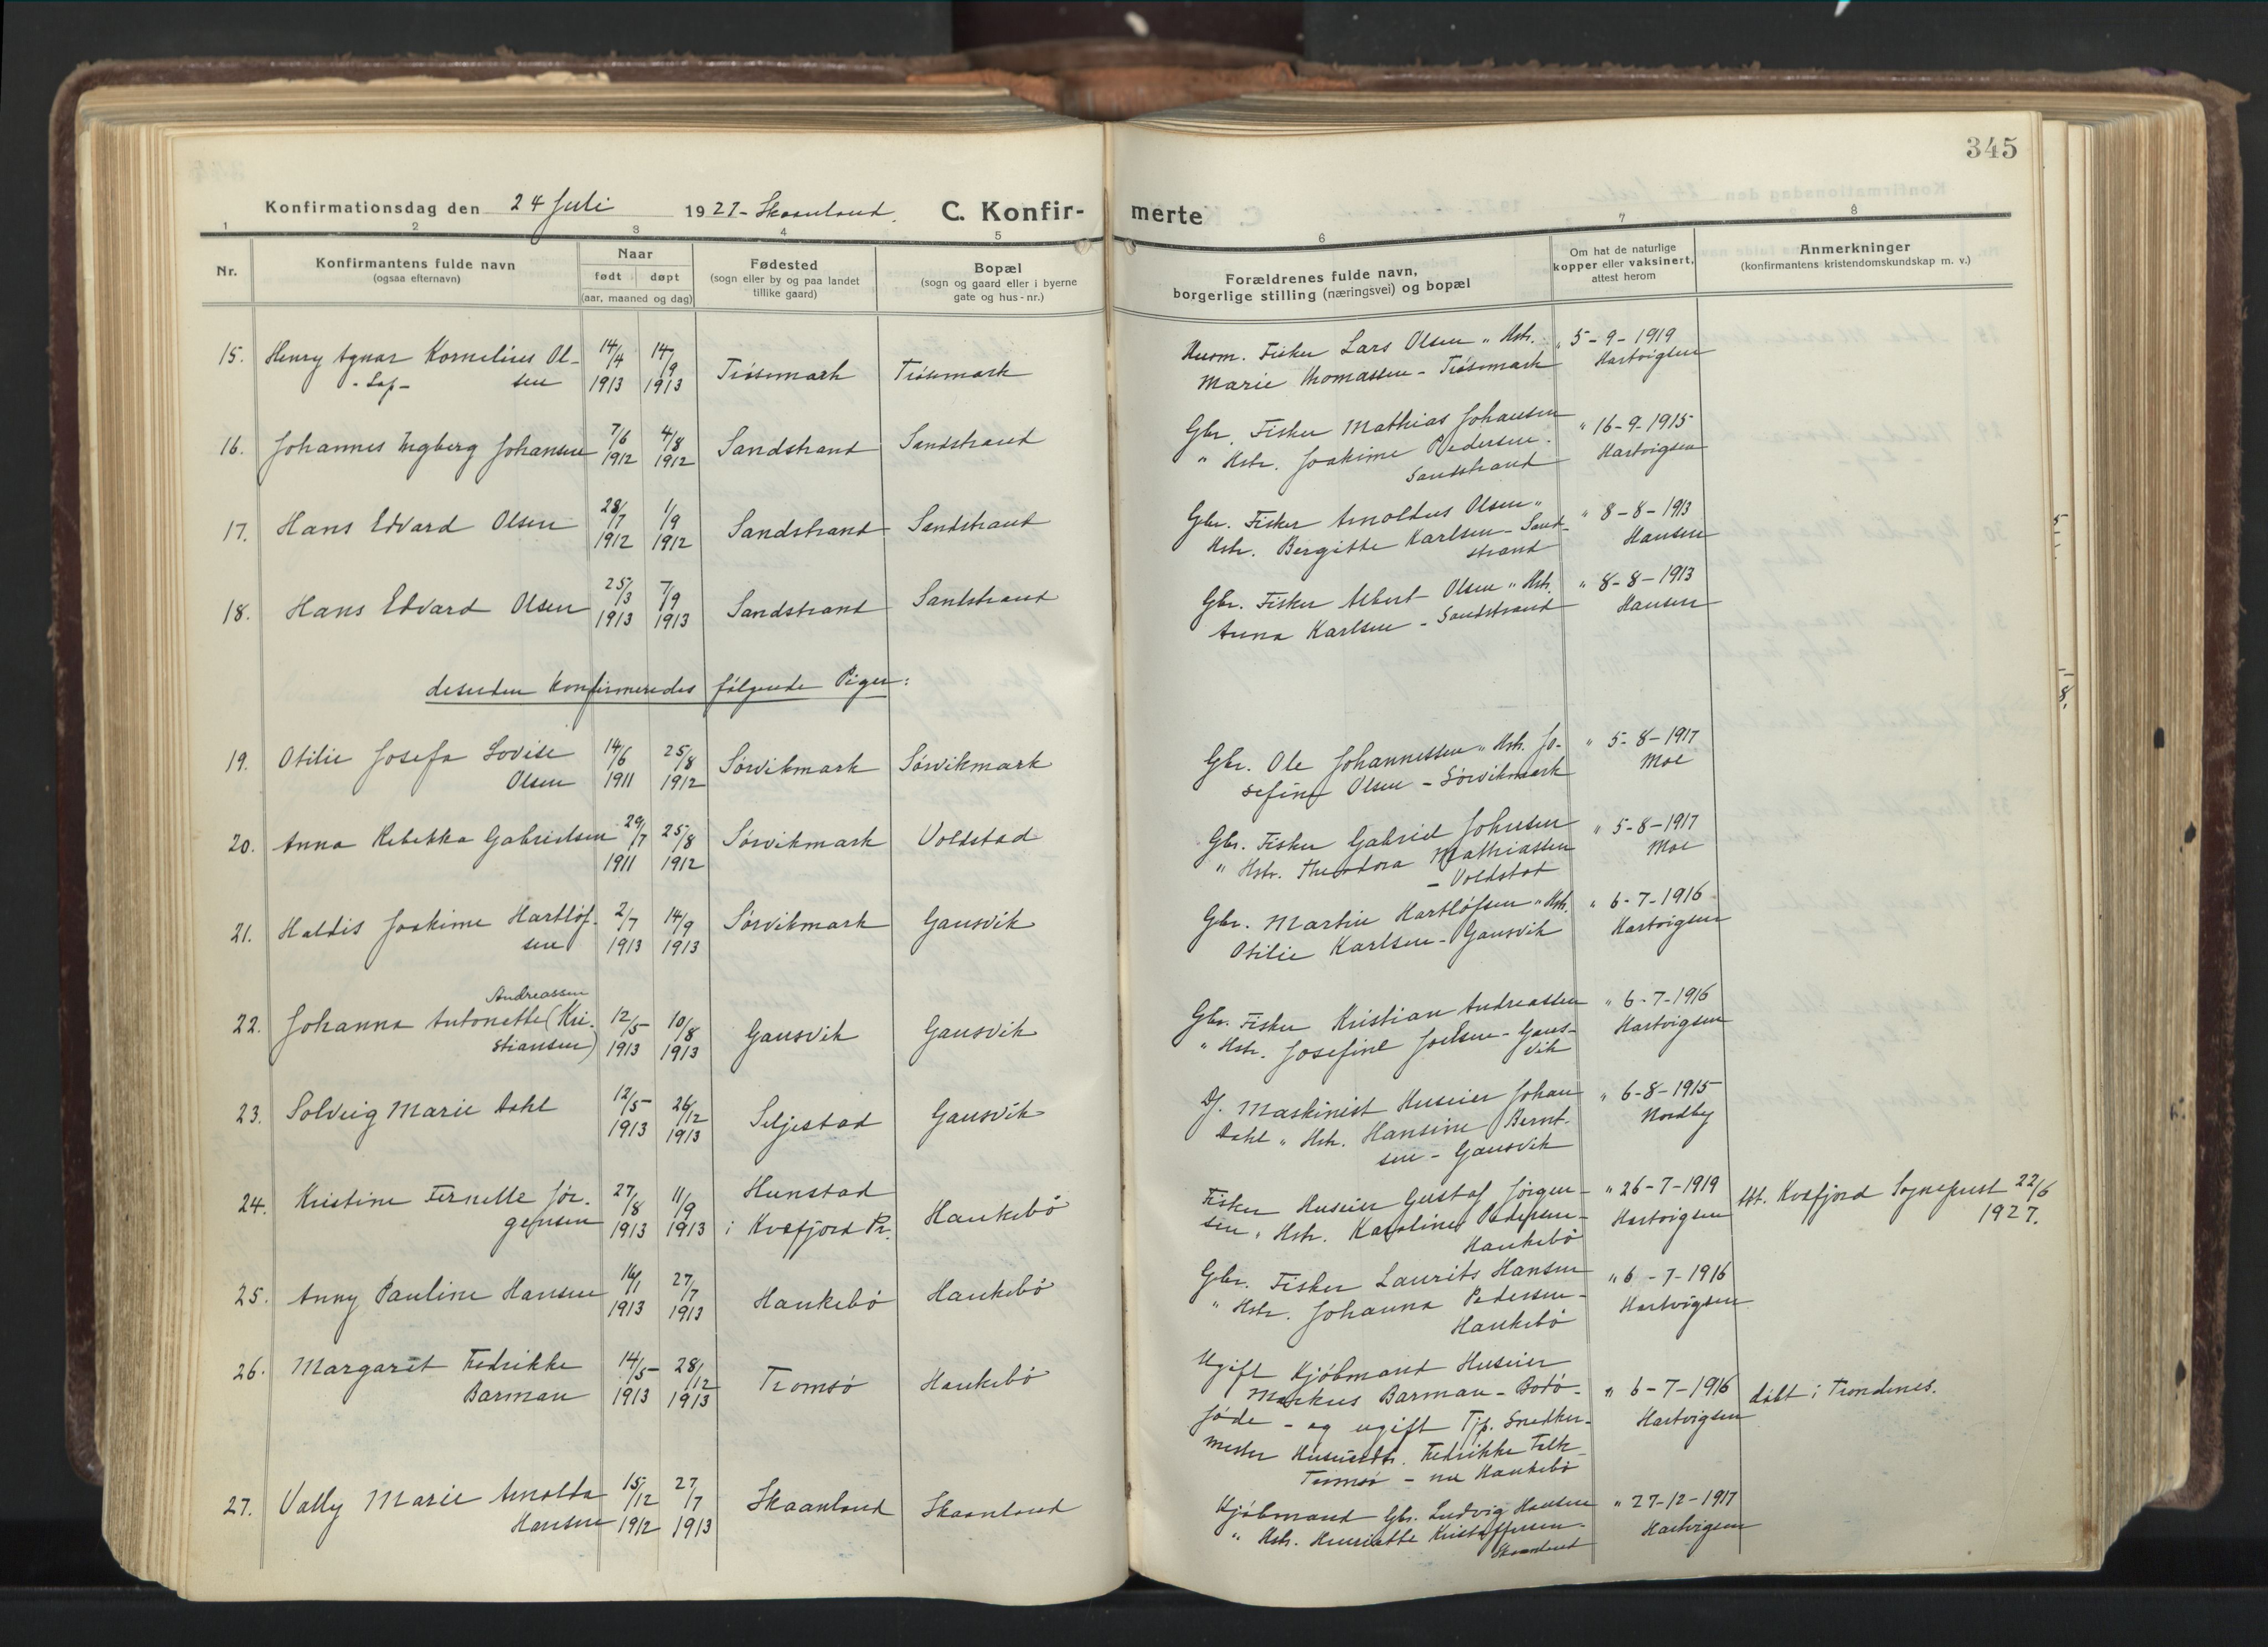 345
Konfirmationsdag den 24 Juli 1927 - Skaanland. C. Konfirmerte
1 2 3 4 5 6 7 8
Nr.
Konfirmantens fulde navn
(ogsaa efternavn)
Naar
født døpt
(aar, maaned og dag)
Fødested
(sogn eller by og paa landet
tillike gaard)
Bopæl
(sogn og gaard eller i byerne
gate og hus-nr.)
Forældrenes fulde navn,
borgerlige stilling (næringsvei) og bopæl
Om hat de naturlige
kopper eller vaksinert,
attest herom
Anmerkninger
(konfirmantens kristendomskundskap m. v.)
15. Henry Agnar Kornelius Ol-
- Lap - sen
14/4 1913 14/9 1913 Trösemark Trösemark
Husm. Fisker Lars Olsen " Hstr.
Marie Thomassen - Trösemark
" 5-9-1919
Hartvigsen
16. Johannes Ingberg Johansen
7/6 1912 4/8 1912 Sandstrand Sandstrand
Gbr. Fisker Mathias Johansen
" Hstr. Joakime Pedersen -
Sandstrand
" 16-9-1915
Hartvigsen
17. Hans Edvard Olsen
28/7 1912 1/9 1912 Sandstrand Sandstrand
Gbr. Fisker Arnoldus Olsen "
Hstr. Bergitte Karlsen - Sand-
strand
" 8-8-1913
Hansen
18. Hans Edvard Olsen
25/3 1913 7/9 1913 Sandstrand Sandstrand
Gbr. Fisker Albert Olsen " Hstr.
Anna Karlsen - Sandstrand
" 8-8-1913
Hansen
desuden konfirmeredes følgende Piger:
19. Otilie Josefa Lovise
Olsen
14/6 1911 25/8 1912 Sörvikmark Sörvikmark
Gbr. Ole Johannessen " Hstr. Jo-
sefine Olsen - Sörvikmark
" 5-8-1917
Moe
20. Anna Rebekka Gabrielsen
29/7 1911 25/8 1912 Sörvikmark Voldstad
Gbr. Fisker Gabriel Johnsen
" Hstr. Theodora Mathiassen
- Voldstad
" 5-8-1917
Moe
21. Haldis Joakime Hartlöf-
sen
2/7 1913 14/9 1913 Sörvikmark Gausvik
Gbr. Martin Hartlöfsen " Hstr.
Otilie Karlsen - Gausvik
" 6-7-1916
Hartvigsen
Andreassen
22. Johanna Antonette (Kri-
stiansen)
12/5 1913 10/8 1913 Gausvik Gausvik
Gbr. Fisker Kristian Andreassen
" Hstr. Josefine Joelsen - Gaus-
vik
" 6-7-1916
Hartvigsen
23. Solveig Marie Dahl
12/5 1913 26/12 1913 Seljestad Gausvik
Df. Maskinist Huseier Johan
Dahl " Hstr. Hansine Bernt-
sen - Gausvik
" 6-8-1915
Nordby
24. Kristine Fernette Jör-
gensen
27/8 1913 11/9 1913 Hunstad
i Kvæfjord Pr. Haukebö
Fisker Huseier Gustaf Jörgen-
sen " Hstr. Karoline Pedersen -
Haukebö
" 26-7-1919
Hartvigsen
Att. Kvæfjord Sogneprest 22/6
1927.
25. Anny Pauline Hansen
16/1 1913 27/7 1913 Haukebö Haukebö
Gbr. Fisker Laurits Hansen
" Hstr. Johanna Pedersen -
Haukebö
" 6-7-1916
Hartvigsen
26. Margaret Fredrikke
Barman
14/5 1913 28/12 1913 Tromsö Haukebö
Ugift Kjöbmand Huseier
Markus Barman - Bodö-
jöde - og ugift Tjp. Snedker-
mester Fredrikke Falk
Tromsö - nu Haukebö
" 6-7-1916
Hartvigsen
döbt i Trondenes.
27. Vally Marie Arnolda
Hansen
15/12 1912 27/7 1913 Skaanland Skaanland
Kjöbmand Gbr. Ludvig Hansen
" Hstr. Henriette Kristoffersen -
Skaanland
" 27-12-1917
Hartvigsen